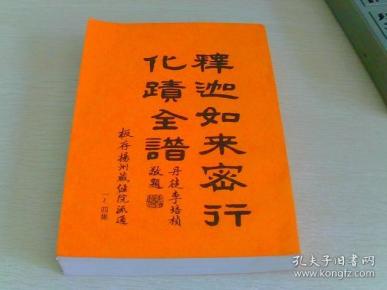 釋迦如來密行
化蹟全譜
丹徒李培楨
敬題
板存揚州藏經院流通
一～四集
孔夫子旧书网